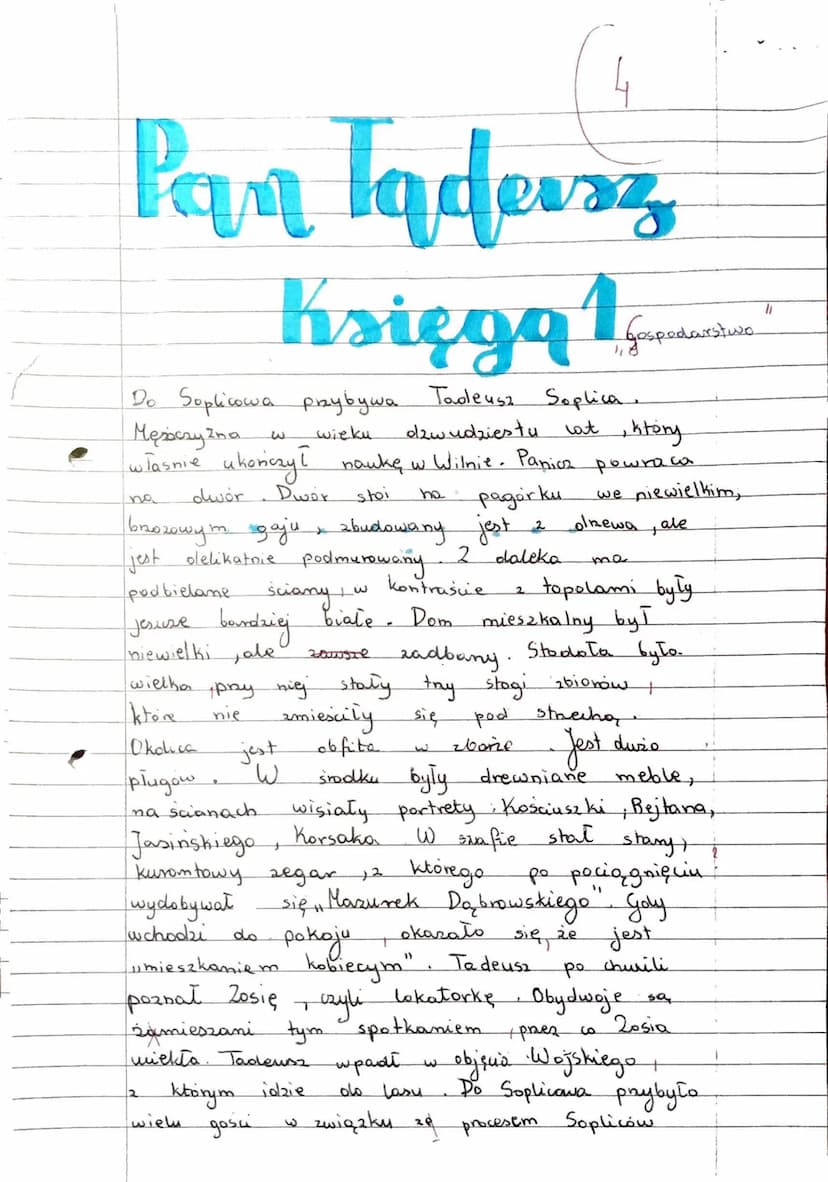 4
Pan Tadeusz
Księga 1
„Gospodarstwo"
Do Soplicowa przybywa Tadeusz Soplica.
Mężczyzna w wieku dzwudziestu lat, który
właśnie ukończył naukę w Wilnie. Panicz powraca
na dwór. Dwór stoi na pagórku we niewielkim,
brzozowym gaju, zbudowany jest z drzewa, ale
jest delikatnie podmurowany. Z daleka ma
podbielane ściany, w kontraście z topolami były
jeszcze bardziej białe. Dom mieszkalny był
niewielki, ale zawsze zadbany. Stodoła była
wielka, przy niej stały trzy stogi zbiorów,
które nie zmieściły się pod strzechą.
Okolica jest obfita w zboże. Jest dużo
pługów. W środku były drewniane meble,
na ścianach wisiały portrety: Kościuszki, Rejtana,
Jasińskiego, Korsaka. W szafie stał stary,
kurantowy zegar, z którego po pociągnięciu
wydobywał się „Mazurek Dąbrowskiego". Gdy
wchodzi do pokoju, okazało się, że jest
„mieszkaniem kobiecym". Tadeusz po chwili
poznał Zosię, czyli lokatorkę. Obydwoje są
zamieszani tym spotkaniem, przez co Zosia
uciekła. Tadeusz wpadł w objęcia Wojskiego,
z którym idzie do lasu. Do Soplicowa przybyło
wielu gości w związku ze procesem Sopliców